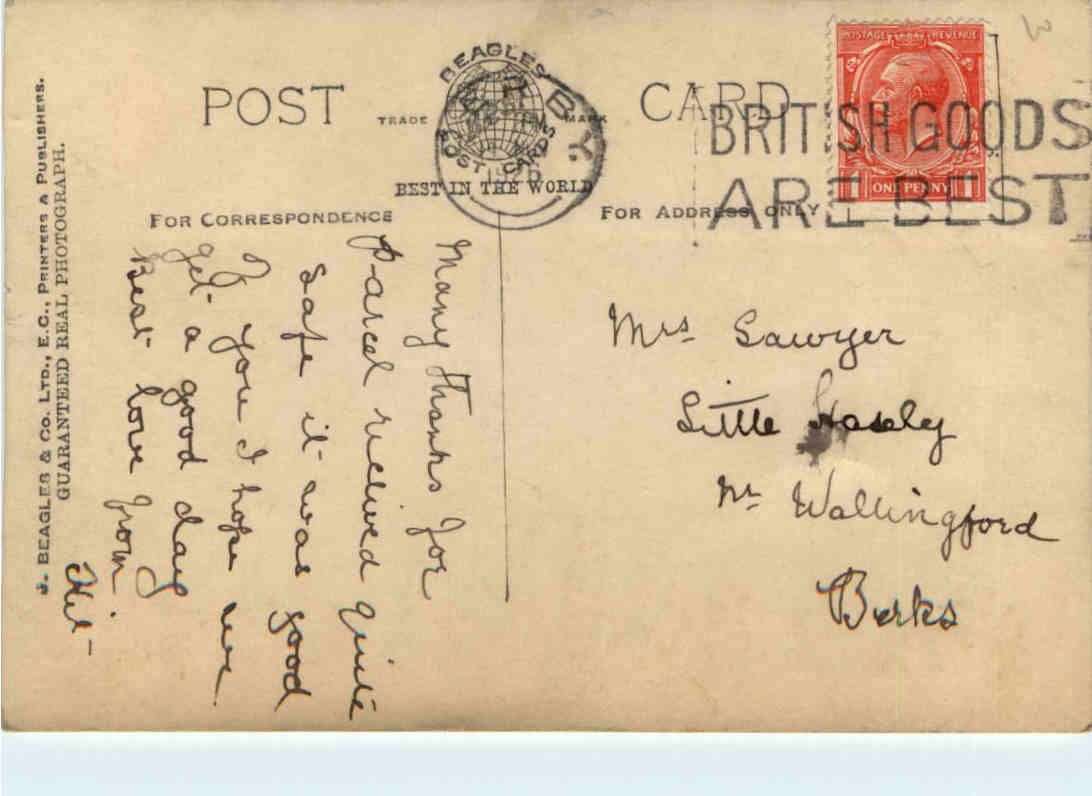 J. BEAGLES & Co. LTD., E.C., PRINTERS & PUBLISHERS.
GUARANTEED REAL PHOTOGRAPH.
POST CARD
TRADE MARK
BEAGLES
POST CARDS
BEST IN THE WORLD
DERBY
FOR CORRESPONDENCE
FOR ADDRESS ONLY
POSTAGE REVENUE
1 ONE PENNY 1
BRITISH GOODS
ARE BEST
Many thanks for
Parcel recieved quite
safe it was good
of you I hope we
get a good day
Best love from
Mrs Sawyer
Little Hasely
Nr Wallingford
Berks